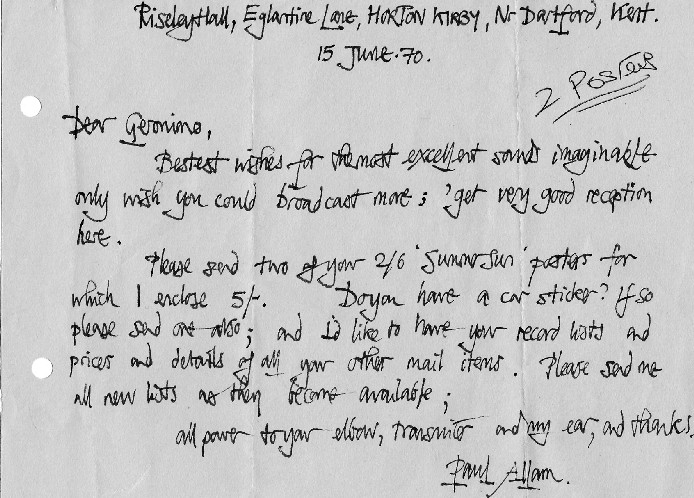 Riseley Hall, Eglantine Lane, HORTON KIRBY, Nr Dartford, Kent.
15 June. 70.
2 Posters
Dear Geronimo,
Bestest wishes for the most excellent sounds imaginable
only wish you could broadcast more; 'get very good reception
here.
Please send two of your 2/6 'Summer Sun' posters for
which I enclose 5/-. Do you have a car sticker? If so
please send one also; and I'd like to have your record lists and
prices and details of all your other mail items. Please send me
all new lists as they become available;
all power to your elbow, transmitter and my ear, and thanks.
Paul Allam.